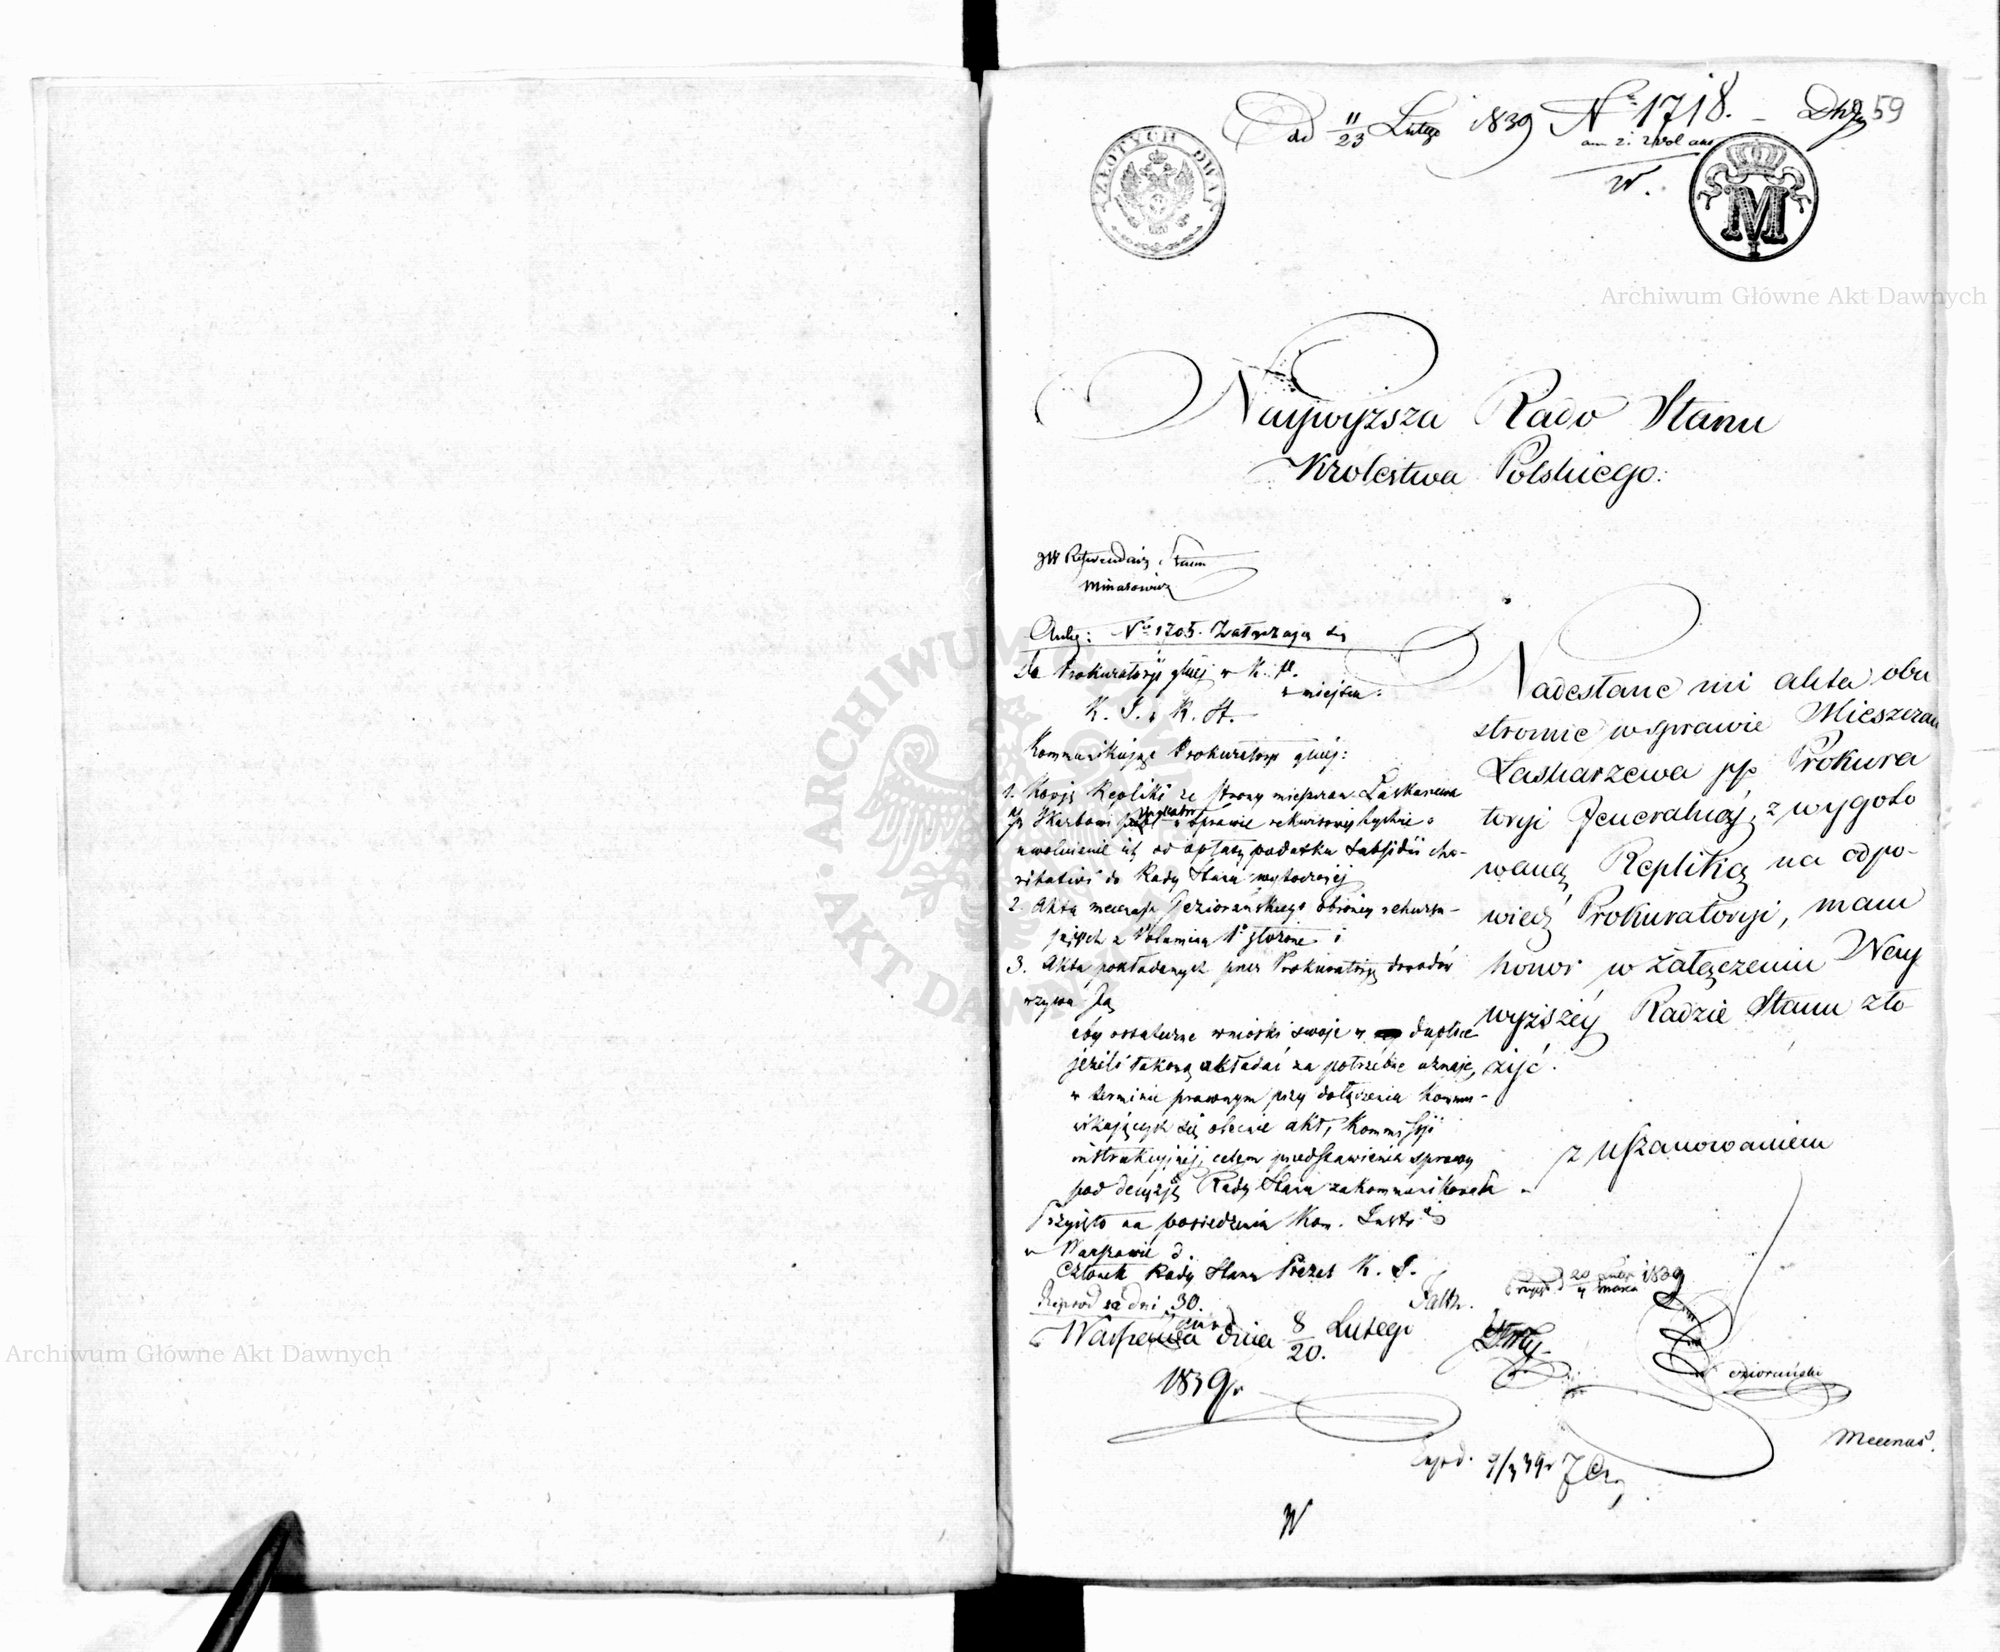 dd 11/23 Lutego 1839 Nº 1718. 59
W.
ZŁOTYCH DWA
M
Archiwum Główne Akt Dawnych
Naywyższa Rado Stanu
Krolestwa Polskiego:
JW Referendarz Stanu
Minasowicz
Nº 1705. Załączają się
Do Prokuratoryi głnej w K. P.
w miejscu.
K. I. R. St.
Kommunikując Prokuratoryi głnej:
1. Kopją Repliki ze strony mieszczan Łaskarzewa
p/ko Skarbowi w sprawie rekursowey
uwolnienie ich od opłaty podatku subsidii cha-
ritativi do Rady Stanu wytoczonej
2. Akta mecenasa Jeziorańskiego obrońcy rekursu-
jących z Volumina złożone i
3. Akta pokładanych przez Prokuratoryą dowodów
wzywa Ją
aby ostateczne wnioski swoje w duplice
jeżeli takową składać za potrzebne uznaje,
w terminie prawnym przy dołączeniu kommu-
nikujących się obecnie akt, Kommissyi
instrukcyjnej, celem przedstawienia sprawy
pod decyzją Rady Stanu zakommunikowała
Przyięto na posiedzeniu Kom. Instr.
w Warszawie d.
Członek Rady Stanu Prezes K. I.
dni 30.
Nadesłane mi akta obu
stronne w sprawie Mieszczan
Łaskarzewa pp Prokura
toryi Jeneralnéj, z wygoto
waną Repliką na odpo-
wiedź Prokuratoryi, mam
honor w załączeniu Nay
wyższéy Radzie Stanu zło
żyć.
z uszanowaniem
Warszawa dnia 8/20. Lutego
1839 r.
Jeziorański
Mecenas.
Exped. 9/3 39 r
W
ARCHIWUM GŁÓWNE AKT DAWNYCH
Archiwum Główne Akt Dawnych